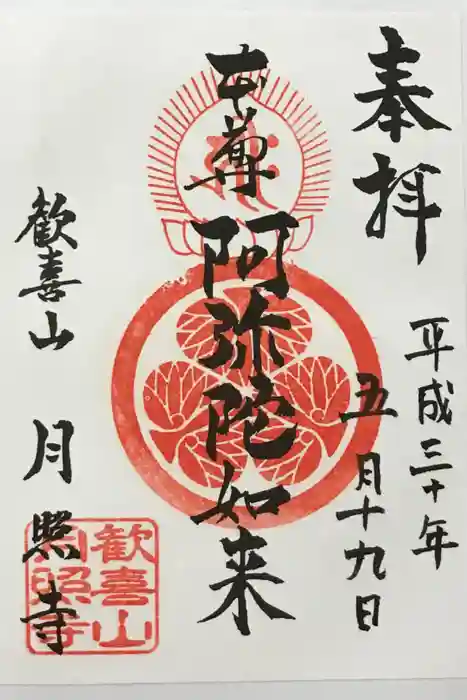 奉拝
平成三十年
五月十九日
本尊
阿弥陀如来
歓喜山
月照寺
歓喜山
月照寺